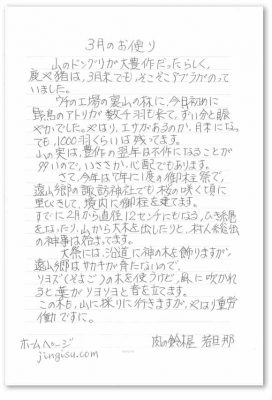 3月のお便り
山のドングリが大豊作だったらしく、
鹿や猪は、3月末でも、そこそこアブラがのって
いました。
ウチの工場の裏山の森に、今日初めに
野鳥のアトリが数千羽も来て、ずい分と賑
やかでした。やはり、エサがあるのか、月末になっ
ても、1,000羽くらいは残ってます。
山の実は、豊作の翌年は不作になることが
多いので、いささか、心配でもあります。
さて、今年は7年に1度の御柱祭で、
遠山郷の諏訪神社でも桜の咲く頃に
里びきして、境内に御柱を建てます。
すでに2月から直径12センチにもなる、ひき縄
をなったり、山から大木を出したりと、村人総出
の神事は始まってます。
大祭には、沿道に神の木を飾りますが、
遠山郷はサカキが育たないので、
ソヨズ(そよご)の木を使うけど、風に吹かれ
ると葉がソヨソヨと音を立てます。
この木も、山に採りに行きますが、やはり重労
働ですに。
ホームページ
jingisu.com
肉の鈴木屋 若旦那